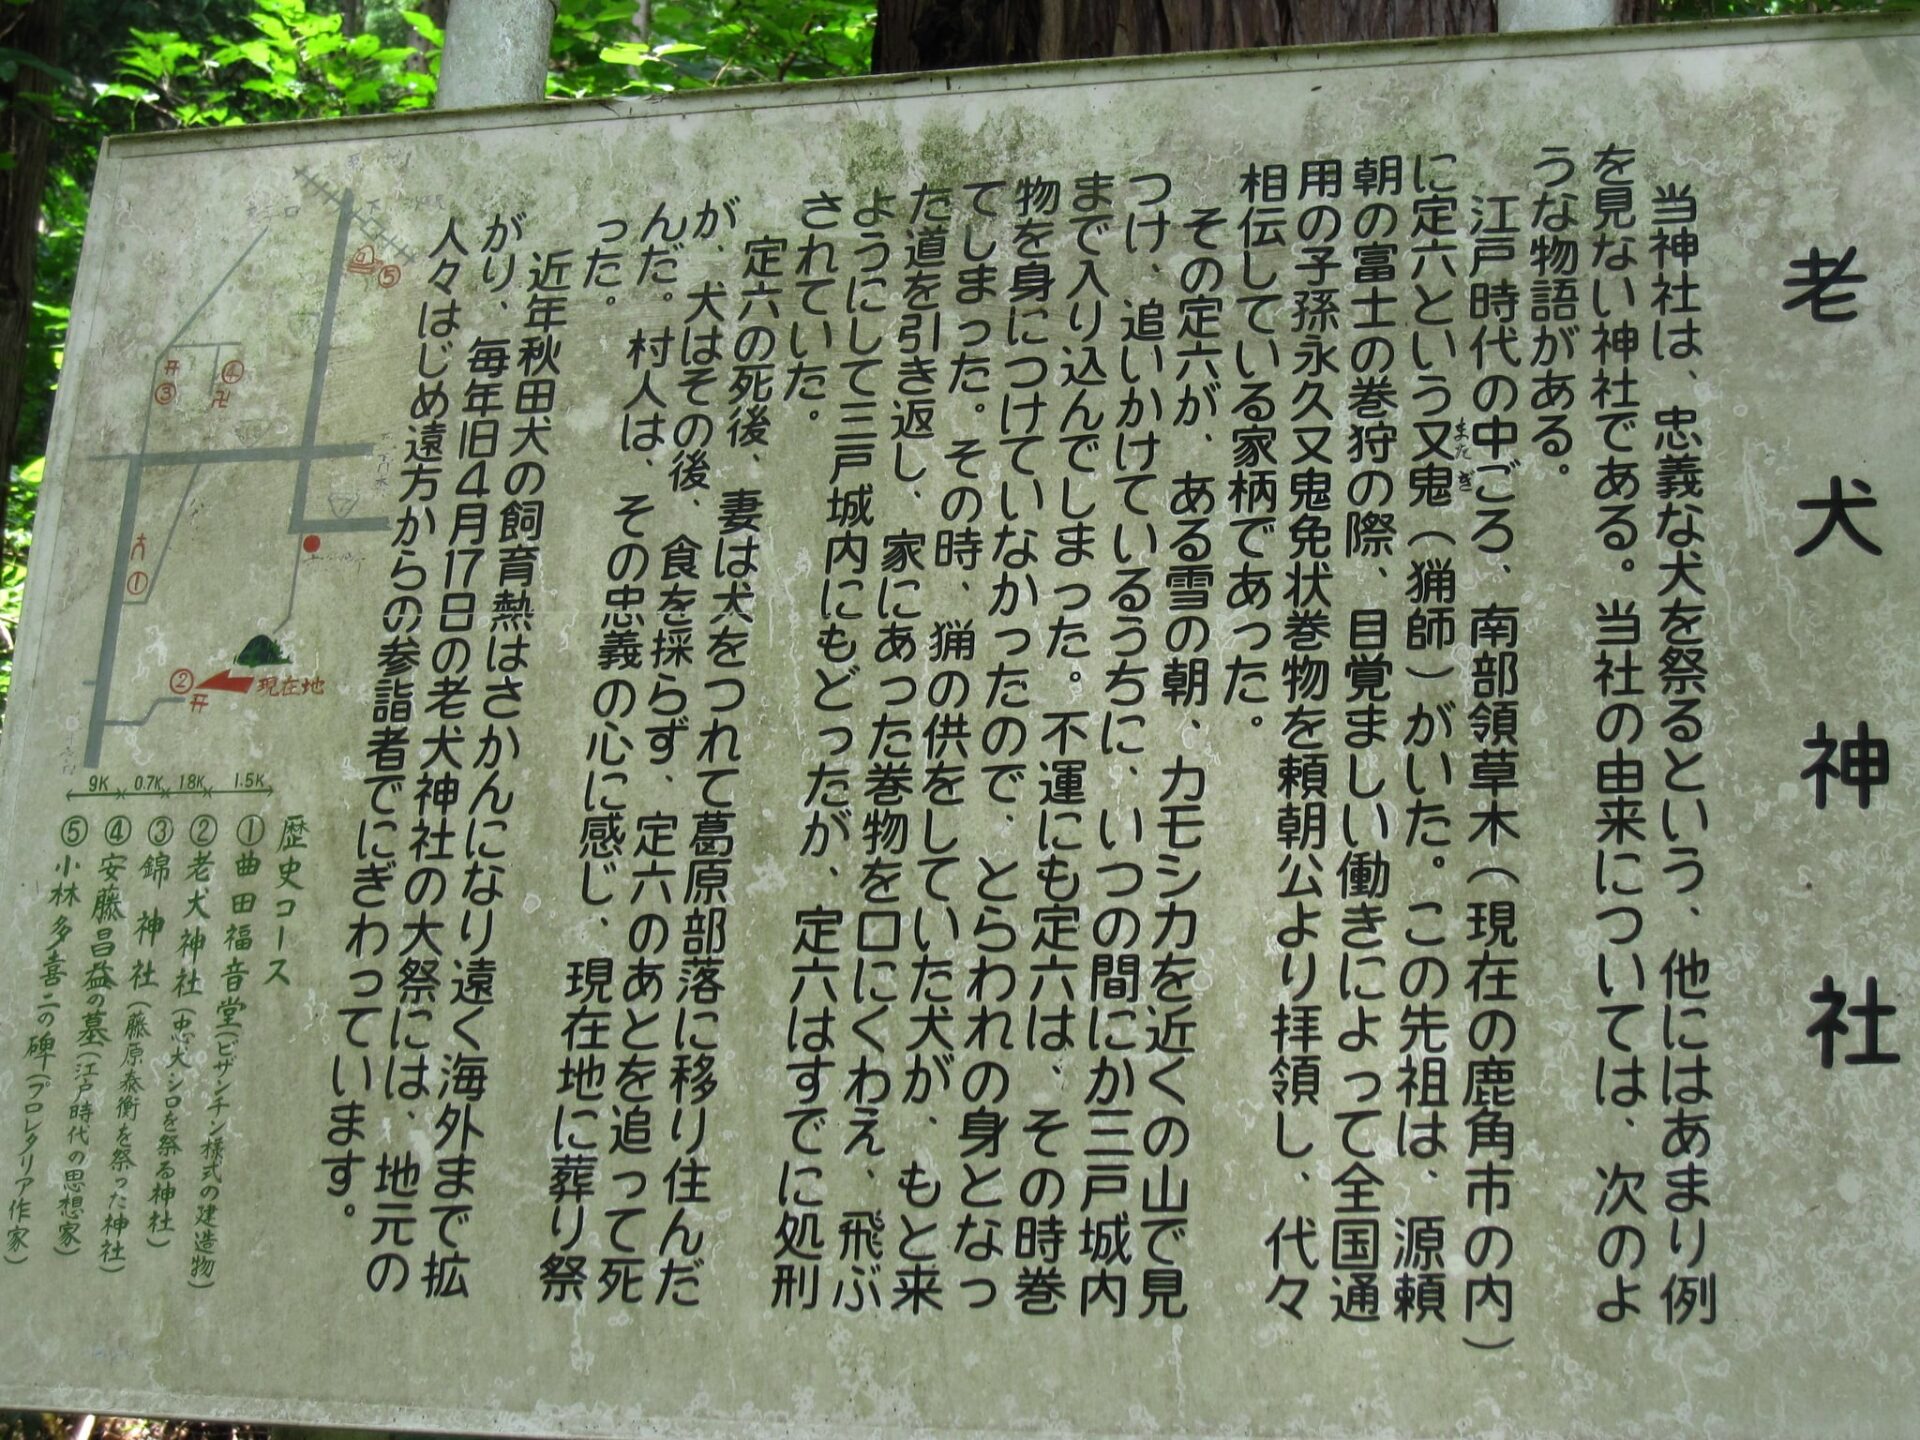 老犬神社
当神社は、忠義な犬を祭るという、他にはあまり例
を見ない神社である。当社の由来については、次のよ
うな物語がある。
江戸時代の中ごろ、南部領草木（現在の鹿角市の内）
に定六という又鬼（猟師）がいた。この先祖は、源頼
またぎ
朝の富士の巻狩の際、目覚ましい働きによって全国通
用の子孫永久又鬼免状巻物を頼朝公より拝領し、代々
相伝している家柄であった。
その定六が、ある雪の朝、カモシカを近くの山で見
つけ、追いかけているうちに、いつの間にか三戸城内
まで入り込んでしまった。不運にも定六は、その時巻
物を身につけていなかったので、とらわれの身となっ
てしまった。その時、猟の供をしていた犬が、もと来
た道を引き返し、家にあった巻物を口にくわえ、飛ぶ
ようにして三戸城内にもどったが、定六はすでに処刑
されていた。
定六の死後、妻は犬をつれて葛原部落に移り住んだ
が、犬はその後、食を採らず、定六のあとを追って死
んだ。村人は、その忠義の心に感じ、現在地に葬り祭
った。
近年秋田犬の飼育熱はさかんになり遠く海外まで拡
がり、毎年旧4月17日の老犬神社の大祭には、地元の
人々はじめ遠方からの参詣者でにぎわっています。
⑤
④
卍
③
①
②
現在地
9K 0.7K 1.8K 1.5K
歴史コース
①曲田福音堂（ビザンチン様式の建造物）
②老犬神社（忠犬シロを祭る神社）
③錦神社（藤原泰衡を祭った神社）
④安藤昌益の墓（江戸時代の思想家）
⑤小林多喜二の碑（プロレタリア作家）